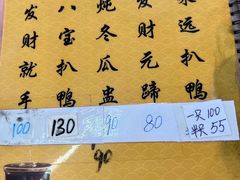 发财就手
八宝扒鸭
炖冬瓜盅
发财元蹄
来远扒鸭
100
130
90
80
一只100
半只55
90